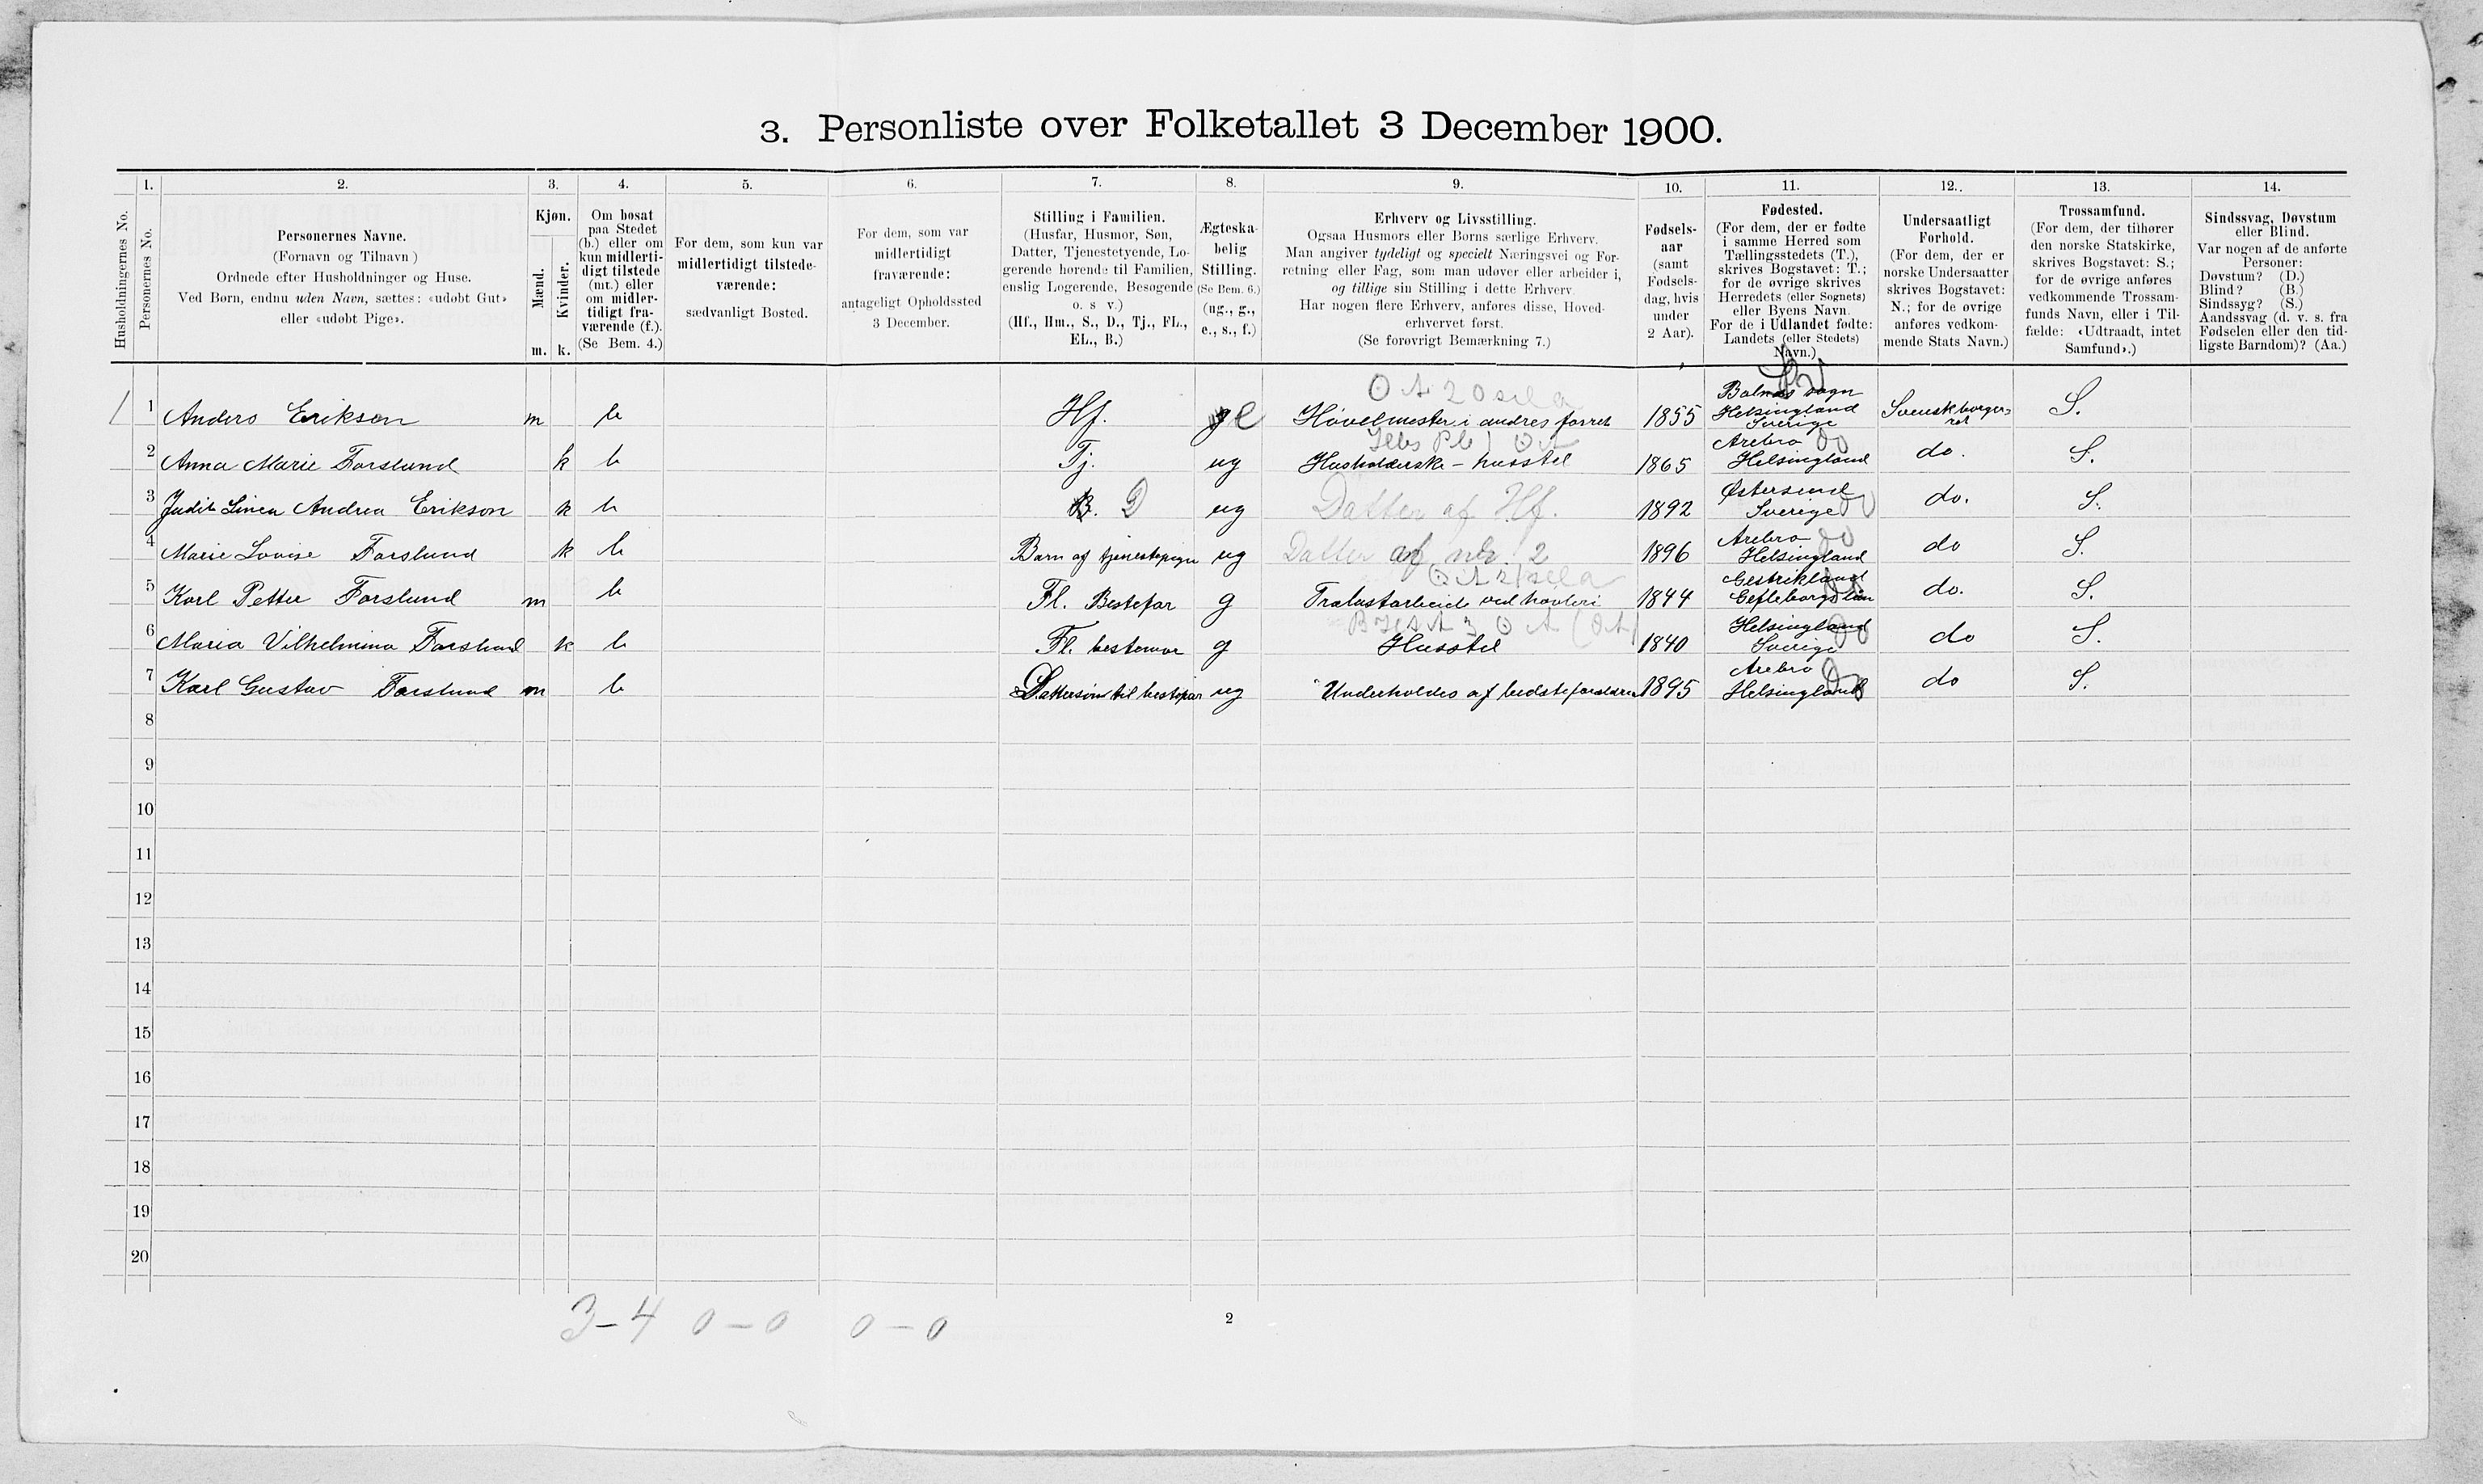 3. Personliste over Folketallet 3 December 1900.
Husholdningernes No.
1.
Personernes No.
2.
Personernes Navne.
(Fornavn og Tilnavn)
Ordnede efter Husholdninger og Huse.
Ved Børn, endnu uden Navn, sættes: «udøbt Gut»
eller «udøbt Pige».
3.
Kjøn.
Mænd.
Kvinder.
m. k.
4.
Om bosat
paa Stedet
(b.) eller om
kun midlerti-
digt tilstede
(mt.) eller
om midler-
tidigt fra-
værende (f.).
(Se Bem. 4.)
5.
For dem, som kun var
midlertidigt tilstede-
værende:
sædvanligt Bosted.
6.
For dem, som var
midlertidigt
fraværende:
antageligt Opholdssted
3 December.
7.
Stilling i Familien.
(Husfar, Husmor, Søn,
Datter, Tjenestetyende, Lo-
gerende hørende til Familien,
enslig Logerende, Besøgende
o. s. v.)
(Hf., Hm., S., D., Tj., FL.,
EL., B.)
8.
Ægteska-
belig
Stilling.
(Se Bem. 6.)
(ug., g.,
e., s., f.)
9.
Erhverv og Livsstilling.
Ogsaa Husmors eller Børns særlige Erhverv.
Man angiver tydeligt og specielt Næringsvei og For-
retning eller Fag, som man udøver eller arbeider i,
og tillige sin Stilling i dette Erhverv.
Har nogen flere Erhverv, anføres disse, Hoved-
erhvervet først.
(Se forøvrigt Bemærkning 7.)
10.
Fødsels-
aar
(samt
Fødsels-
dag, hvis
under
2 Aar).
11.
Fødested.
(For dem, der er fødte
i samme Herred som
Tællingsstedets (T.),
skrives Bogstavet: T.;
for de øvrige skrives
Herredets (eller Sognets)
eller Byens Navn.
For de i Udlandet fødte:
Landets (eller Stedets)
Navn.)
12.
Undersaatligt
Forhold.
(For dem, der er
norske Undersaatter
skrives Bogstavet:
N.; for de øvrige
anføres vedkom-
mende Stats Navn.)
13.
Trossamfund.
(For dem, der tilhører
den norske Statskirke,
skrives Bogstavet: S.;
for de øvrige anføres
vedkommende Trossam-
funds Navn, eller i Til-
fælde: «Udtraadt, intet
Samfund».)
14.
Sindssvag, Døvstum
eller Blind.
Var nogen af de anførte
Personer:
Døvstum? (D.)
Blind? (B.)
Sindssyg? (S.)
Aandssvag (d. v. s. fra
Fødselen eller den tid-
ligste Barndom)? (Aa.)
1 Anders Erikson m b Hf. e Høvelmester i andres forret 1855 Bolnes sogn Helsingland Sverige Svensk borger-ret S.
2 Anna Marie Forslund k b Tj. ug Husholderske - husstel 1865 Arebro Helsingland do. S.
3 Judit Linea Andrea Erikson k b B. D ug Datter af Hf. 1892 Østersund Sverige do. S.
4 Marie Lovise Forslund k b Barn af tjenestepigen ug Datter af nr. 2 1896 Arebro Helsingland do S.
5 Karl Petter Forslund m b Fl. Bestefar g Trælastarbeide ved høvleri 1844 Gestrikland Gefleborgs län do. S.
6 Maria Vilhelmina Forslund k b Fl. bestemor g Husstel 1840 Helsingland Sverige do S.
7 Karl Gustav Forslund m b Dattersøn til bestefar ug Underholdes af bedsteforældre 1895 Arebro Helsingland do S.
8
9
10
11
12
13
14
15
16
17
18
19
20
3-4 0-0 0-0
2